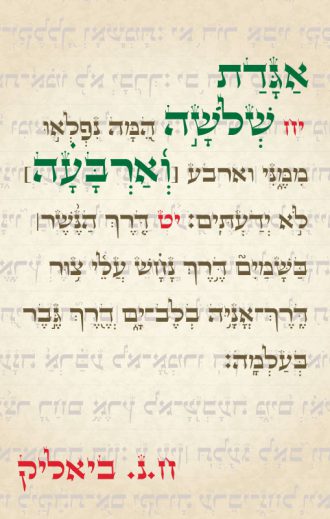 אַגָּדַת
יח שְׁלֹשָׁ֣ה הֵ֭מָּה נִפְלְא֣וּ
מִמֶּ֑נִּי וארבע [וְ֝אַרְבָּעָ֗ה]
לֹ֣א יְדַעְתִּֽים׃ יט דֶּ֤רֶךְ הַנֶּ֨שֶׁר׀
בַּשָּׁמַיִם֮ דֶּ֥רֶךְ נָחָ֗שׁ עֲלֵ֫י צ֥וּר
דֶּֽרֶךְ־אֳנִיָּ֥ה בְלֶב־יָ֑ם וְדֶ֖רֶךְ גֶּ֣בֶר
בְּעַלְמָֽה׃
ח.נ. ביאליק